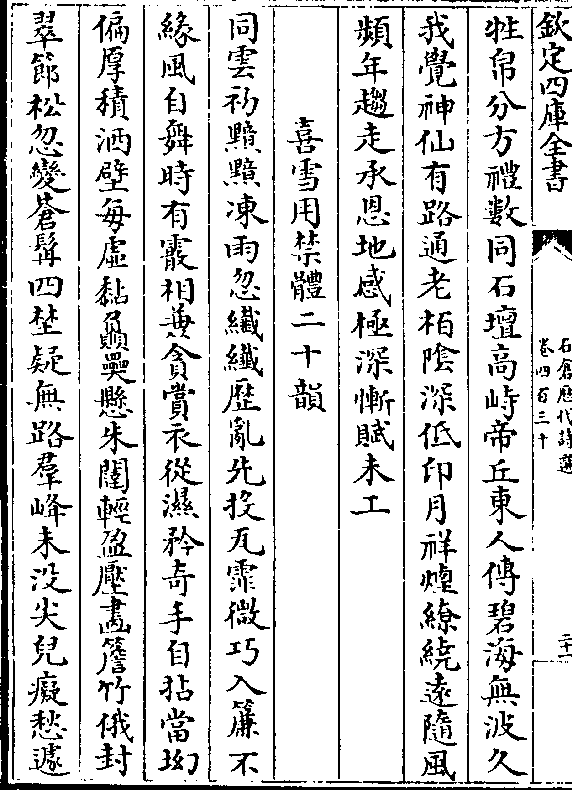 欽定四庫全書
石倉歷代詩選
卷四百三十
二十一
牲帛分方禮數同石壇高峙帝丘東人傳碧海無波久
我覺神仙有路通老柏陰深低印月祥煙繚繞遠隨風
頻年趨走承恩地感極深慚賦未工
喜雪用禁體二十韻
同雲初黯黯凍雨忽纖纖歷亂先投瓦霏微巧入簾不
緣風自舞時有霰相兼貪賞衣從濕矜奇手自拈當坳
偏厚積洒壁每虛黏贔屭懸朱闥輕盈壓畫簷竹俄封
翠節松忽變蒼髯四埜疑無路羣峰未没尖兒癡愁遽